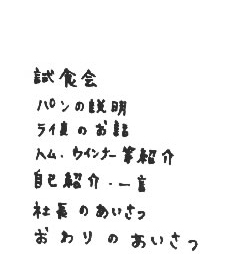 試食会
パンの説明
ライ麦のお話
ハム・ウインナー等紹介
自己紹介・一言
社長のあいさつ
おわりのあいさつ